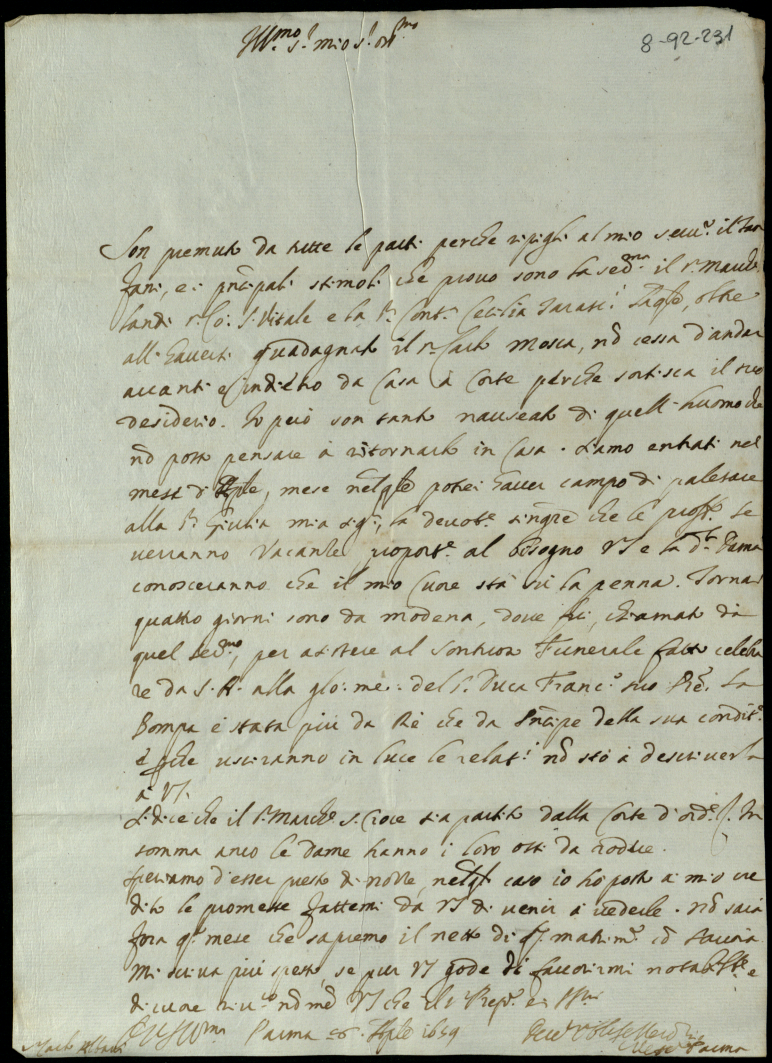 Ill.mo S.r mio S.r oss.mo
8-92-231
Son premuto da tutte le parti perche ripigli al mio serv.o il
fani, e i pñcipali stimoli che provo sono la ser.ma il s.r March.
Landi s.r Co: S. Vitale e la s.ra Cont.a Cecilia oltre
all'haversi guadagnato il s.r Carlo Mosca, nõ cessa d'andar
avanti e indietro da Casa à Corte perche sortisca il suo
desiderio. Io però son tanto nauseato di quell'huomo che
nõ posso pensare à ritornarlo in Casa. Siamo entrati nel
mese di Aple, mese nel qle potrei haver campo di palesare
alla s.ra Giulia mia sig.ra la devot.e che le prof.o. Se
verranno Vacanze, proport.e al bisogno VS e la d.a Dama
conosceranno che il mio Cuore stà sù la penna. Tornai
quattro giorni sono da Modena, dove fui chiamato da
quel ser.mo, per assistere al sontuoso Funerale fatto celebra
re da S. A. alla glo: me: del s.r Duca Franc.o suo Pre. La
Pompa è stata più da Rè che da Pñcipe della sua condit.e
e pche usciranno in luce le relat.i nõ stò à descriverla
à VS.
Si dice che il s.r March.e S. Croce sia partito dalla Corte d'ord.e In
somma anco le Dame hanno i loro ossi da rodere.
Speriamo d'esser presto di nozze, nel ql caso io hò posto à mio cre
dito le promesse fattemi da VS di venir à vederle. Nõ sarà
fora q.o mese che sapremo il netto di q.o matrim.o cõ Savoia.
Mi scriva più spesso, se pur VS gode di favorirmi e
di cuore
Di VS Ill.ma Parma Aple 1659